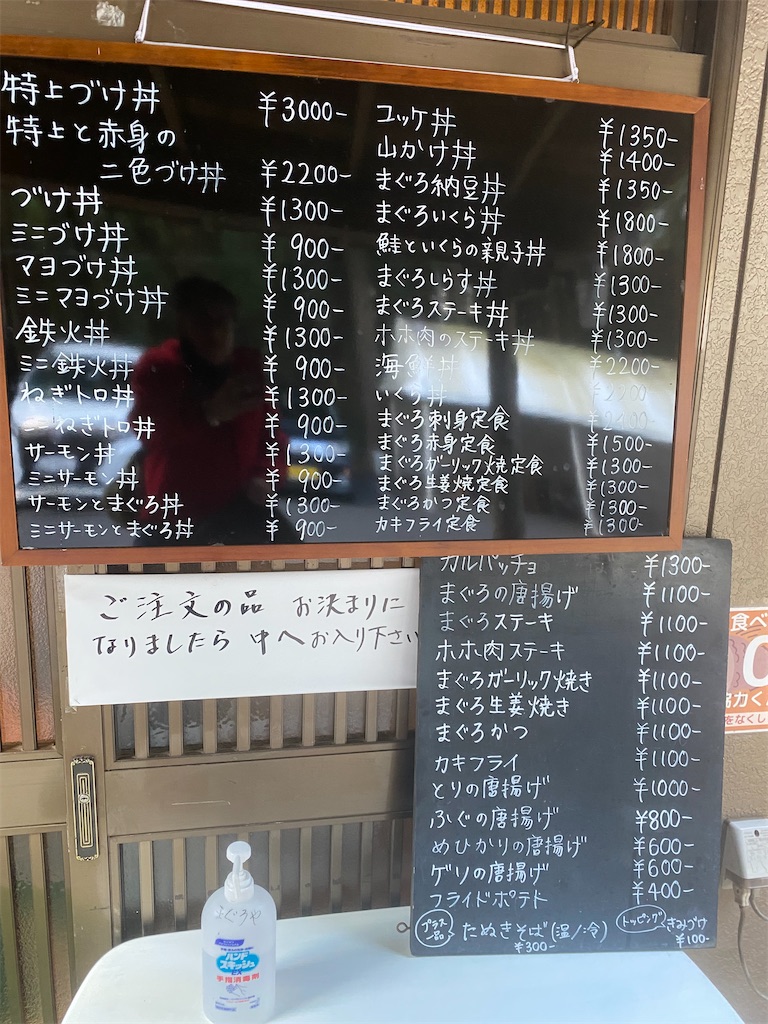 特上づけ丼 ¥3000-
特上と赤身の
二色づけ丼 ¥2200-
づけ丼 ¥1300-
ミニづけ丼 ¥900-
マヨづけ丼 ¥1300-
ミニマヨづけ丼 ¥900-
鉄火丼 ¥1300-
ミニ鉄火丼 ¥900-
ねぎトロ丼 ¥1300-
ミニねぎトロ丼 ¥900-
サーモン丼 ¥1300-
ミニサーモン丼 ¥900-
サーモンとまぐろ丼 ¥1300-
ミニサーモンとまぐろ丼 ¥900-
ユッケ丼 ¥1350-
山かけ丼 ¥1400-
まぐろ納豆丼 ¥1350-
まぐろいくら丼 ¥1800-
鮭といくらの親子丼 ¥1800-
まぐろしらす丼 ¥1300-
まぐろステーキ丼 ¥1300-
ホホ肉のステーキ丼 ¥1300-
海鮮丼 ¥2200-
いくら丼
まぐろ刺身定食
まぐろ赤身定食 ¥1500-
まぐろガーリック焼定食 ¥1300-
まぐろ生姜焼定食 ¥1300-
まぐろかつ定食 ¥1300-
カキフライ定食 ¥1300-
ご注文の品 お決まりに
なりましたら 中へお入り下さい
カルパッチョ ¥1300-
まぐろの唐揚げ ¥1100-
まぐろステーキ ¥1100-
ホホ肉ステーキ ¥1100-
まぐろガーリック焼き ¥1100-
まぐろ生姜焼き ¥1100-
まぐろかつ ¥1100-
カキフライ ¥1100-
とりの唐揚げ ¥1000-
ふぐの唐揚げ ¥800-
めひかりの唐揚げ ¥600-
ゲソの唐揚げ ¥600-
フライドポテト ¥400-
プラス一品 たぬきそば(温/冷) ¥300-
トッピング きみづけ ¥100-
食べ
協力く
をなくし
まぐろや
ハンド
スキッシュ
EX
手指消毒剤